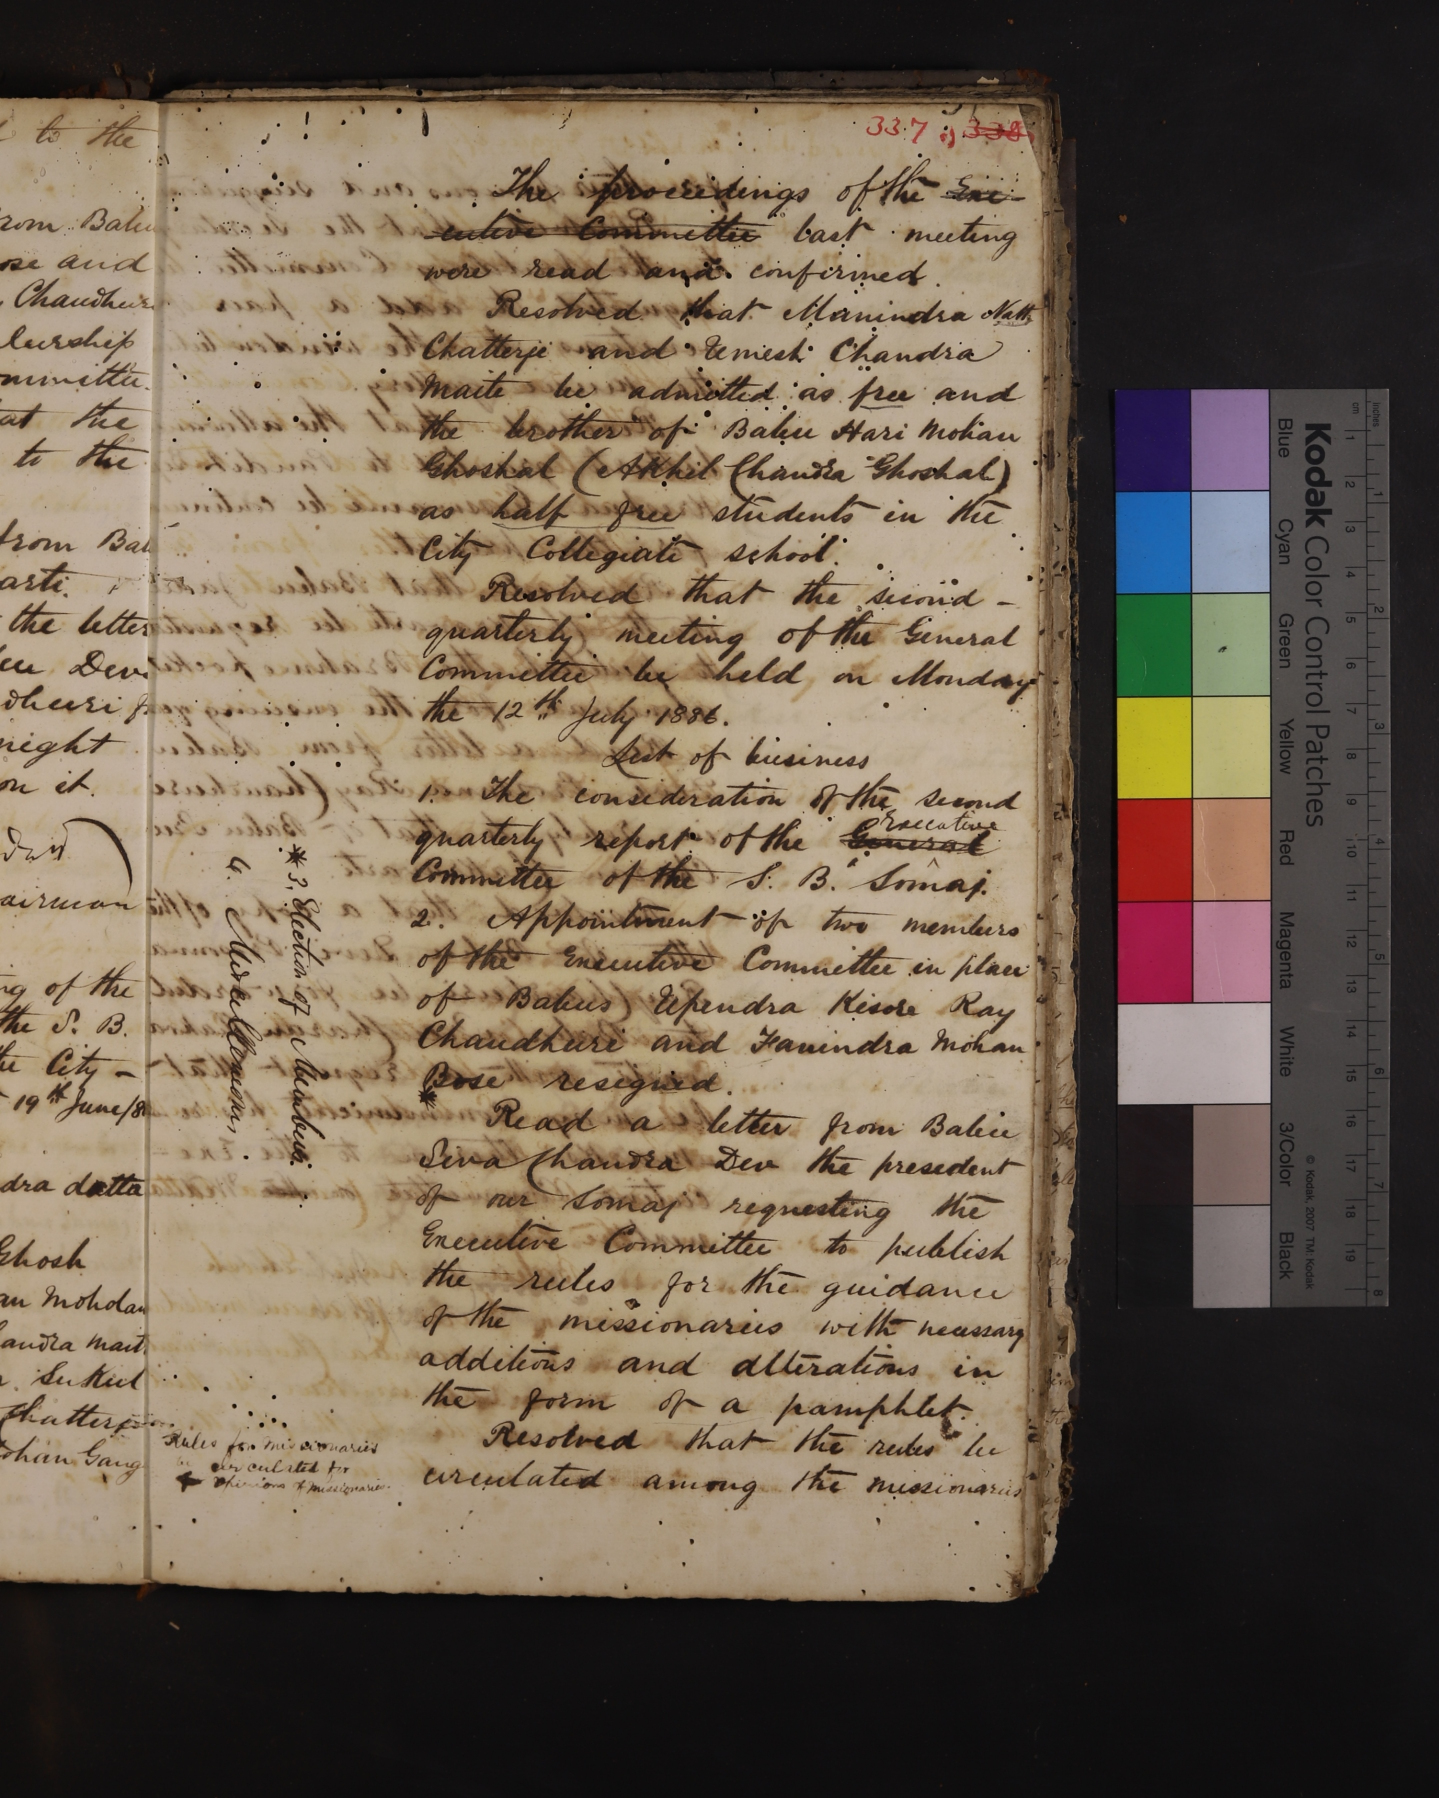 l to the
rom Babu
ose and
Chaudhuri
bership
ommittee.
at the
to the
from Bab
arti.
the letter
Dev
dhuri
night
on it.
airman
ng of the
the S. B.
the City -
19th June/8
dra datta
Ghosh
an Moholan
andra mait
Sukul
Chatterje
ohan Gang
337, 338
The proceedings of the Exe-
cutive Committee last meeting
were read and confirmed.
Resolved that Manindra Nath
Chatterje and Umesh Chandra
Maite be admitted as free and
the brother of Babu Hari Mohan
Ghoshal (Akhil Chandra Ghoshal)
as half free students in the
City Collegiate school.
Resolved that the second -
quarterly meeting of the General
Committee be held on Monday
the 12th July 1886.
List of business
1. The consideration of the second
quarterly report of the General Executive
Committee of the S. B. Somaj.
2. Appointment of two members
of the Executive Committee in place
of Babus Upendra Kisore Ray
Chaudhuri and Fanindra Mohan
Bose resigned.
*
* 3. Election of Members.
4. Miscellaneous.
Read a letter from Babu
Siva Chandra Dev the president
of our Somaj requesting the
Executive Committee to publish
the rules for the guidance
of the missionaries with necessary
additions and alterations in
the form of a pamphlet.
Resolved that the rules be
circulated among the missionaries
Rules for missionaries
circulated for
opinions of missionaries.
Kodak Color Control Patches
Blue Cyan Green Yellow Red Magenta White 3/Color Black
© Kodak, 2007 TM: Kodak
inches 1 2 3 4 5 6 7 8
cm 1 2 3 4 5 6 7 8 9 10 11 12 13 14 15 16 17 18 19